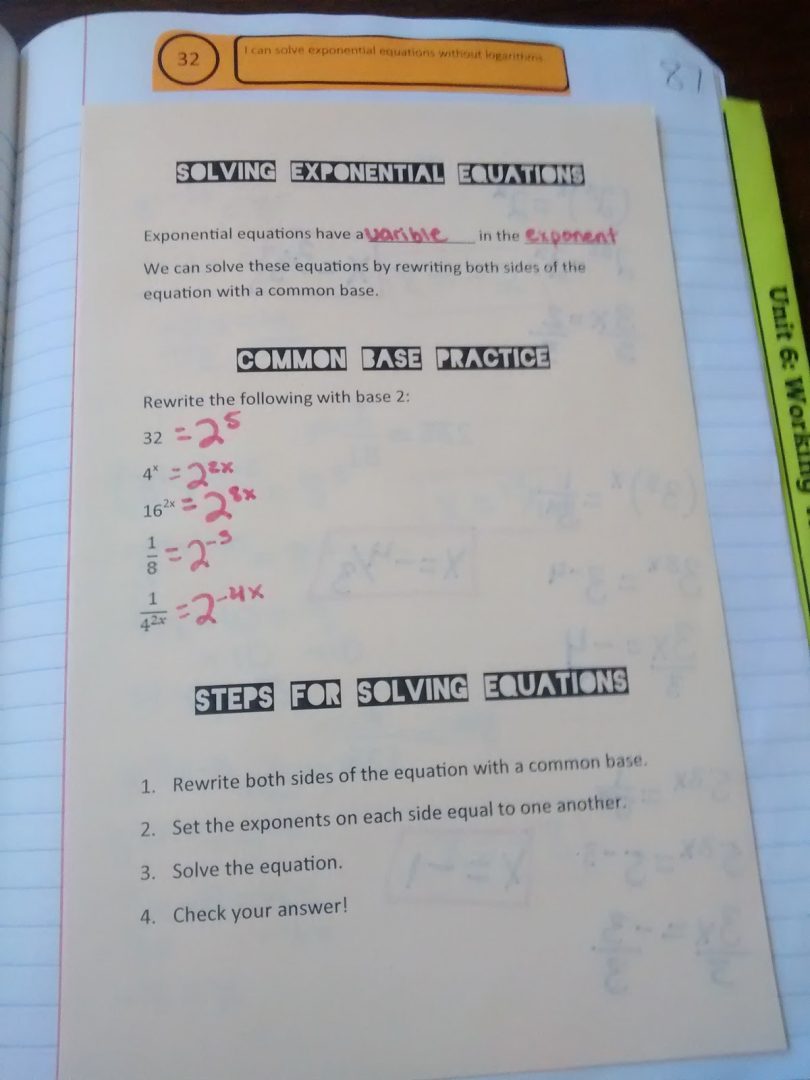 32
I can solve exponential equations without logarithms.
87
SOLVING EXPONENTIAL EQUATIONS
Exponential equations have a varible ___ in the exponent
We can solve these equations by rewriting both sides of the
equation with a common base.
COMMON BASE PRACTICE
Rewrite the following with base 2:
32 = 2^5
4^x = 2^2x
16^2x = 2^8x
1/8 = 2^-3
1/4^2x = 2^-4x
STEPS FOR SOLVING EQUATIONS
1. Rewrite both sides of the equation with a common base.
2. Set the exponents on each side equal to one another.
3. Solve the equation.
4. Check your answer!
Unit 6: Working